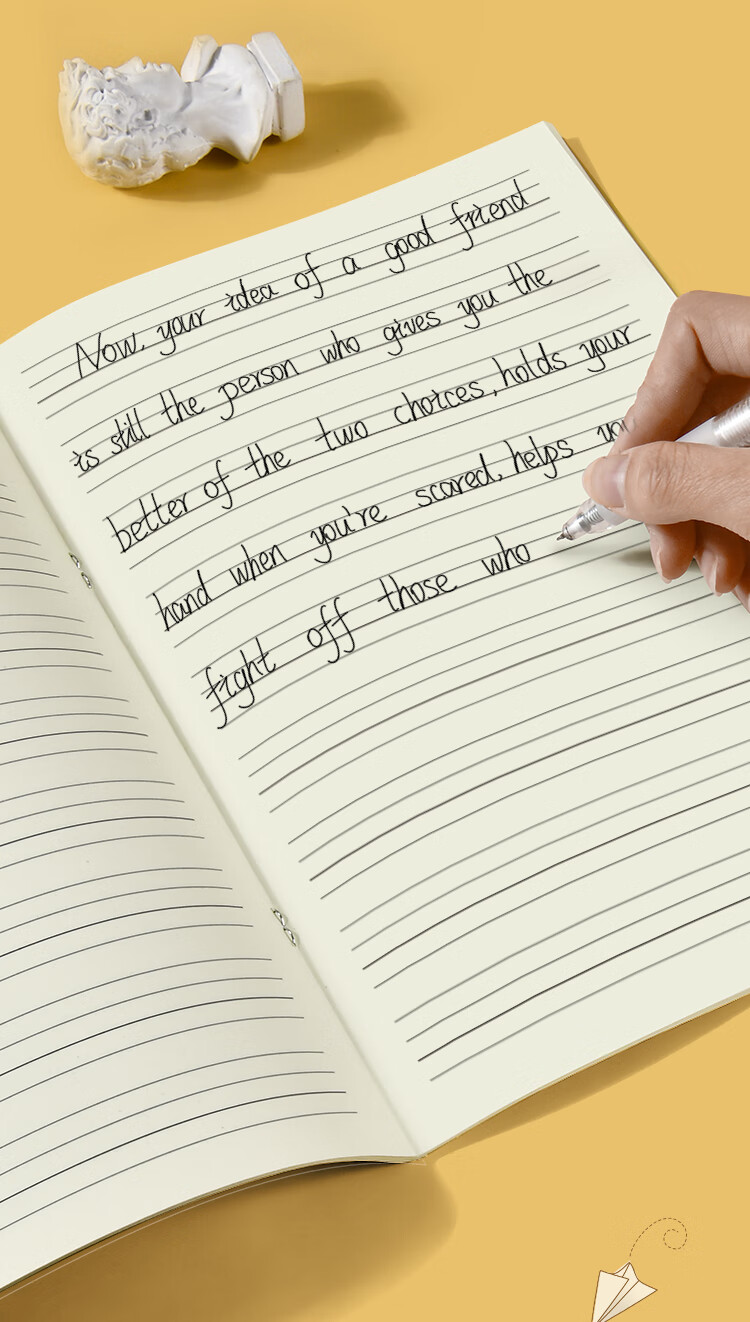 Now, your idea of a good friend
is still the person who gives you the
better of the two choices, holds your
hand when you're scared, helps
fight off those who